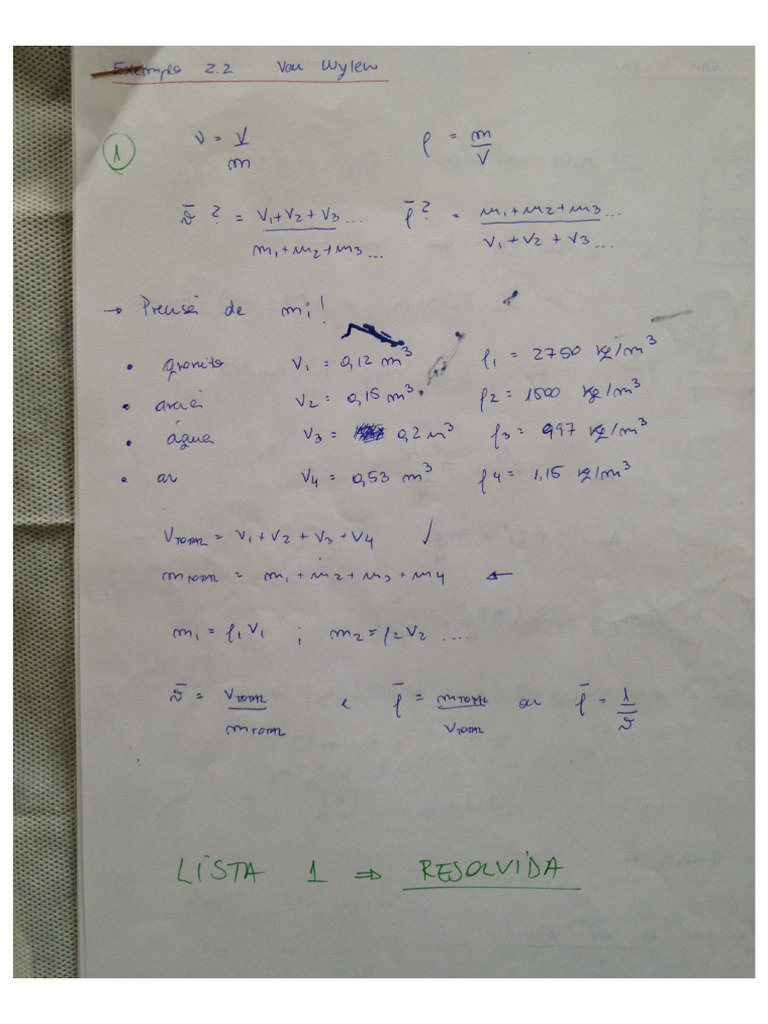 Exemplo 2.2 Van Wylen
1
v = V/m ρ = m/V
v̄ ? = V1+V2+V3.../m1+m2+m3... ρ̄ ? = m1+m2+m3.../V1+V2+V3...
→ Precisa de mi!
• granito V1 = 0,12 m³ ρ1 = 2750 kg/m³
• areia V2 = 0,15 m³ ρ2 = 1500 kg/m³
• água V3 = 0,2 m³ ρ3 = 997 kg/m³
• ar V4 = 0,53 m³ ρ4 = 1,15 kg/m³
VTOTAL = V1+V2+V3+V4 ✓
mTOTAL = m1+m2+m3+m4 ←
m1 = ρ1V1 ; m2 = ρ2V2 ....
v̄ = VTOTAL/mTOTAL e ρ̄ = mTOTAL/VTOTAL ou ρ̄ = 1/v̄
LISTA 1 ⇒ RESOLVIDA